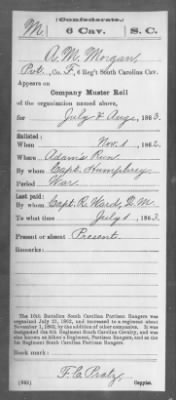 (Confederate.)
M 6 Cav. S. C.
A. M. Morgan
Pvt., Co. F, 6 Reg't South Carolina Cav.
Appears on
Company Muster Roll
of the organization named above,
for July & Aug, 1863.
Enlisted:
When Nov. 1, 1862.
Where Adams Run
By whom Capt. Humphrey
Period War.
Last paid:
By whom Capt. R. Ward, Q.M.
To what time July 1, 1863.
Present or absent Present.
Remarks:
The 16th Battalion South Carolina Partisan Rangers was
organized July 21, 1862, and increased to a regiment about
November 1, 1862, by the addition of other companies. It was
designated the 6th Regiment South Carolina Cavalry, and was
also known as Aiken's Regiment, Partisan Rangers, and as the
1st Regiment South Carolina Partisan Rangers.
Book mark:
(642) Copyist.